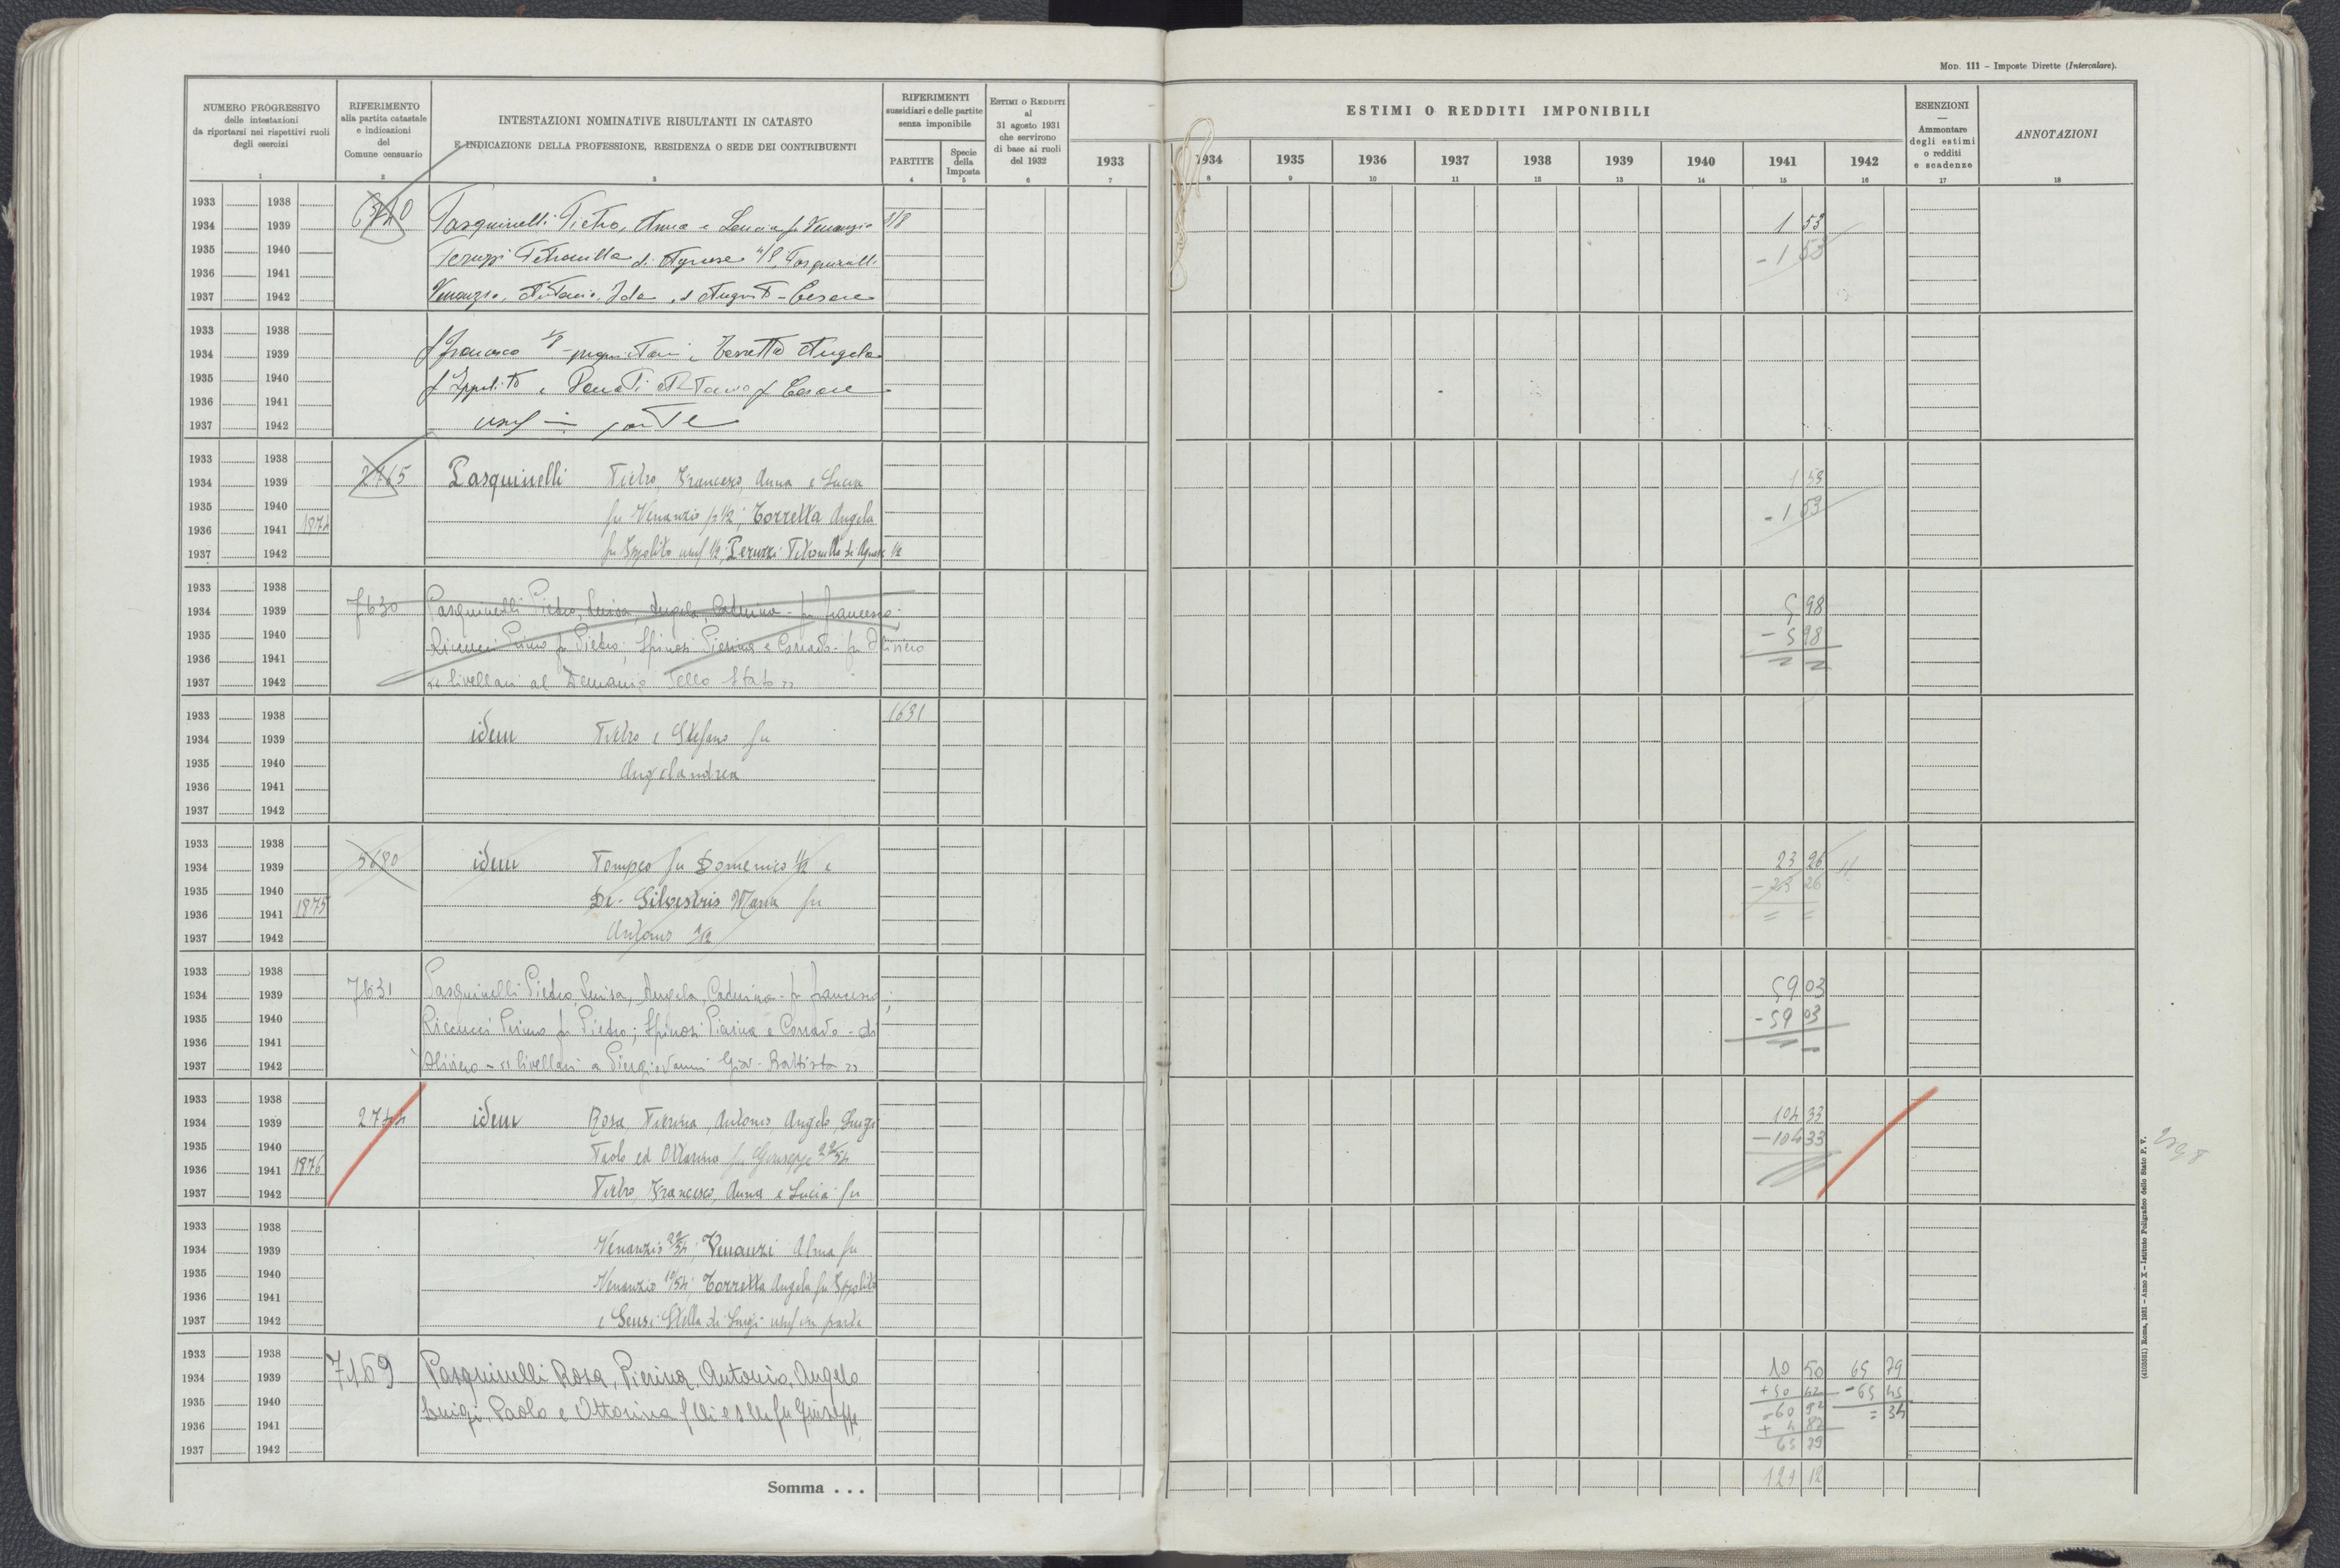 MOD. 111 – Imposte Dirette (Intercalare).
NUMERO PROGRESSIVO delle intestazioni da riportarsi nei rispettivi ruoli degli esercizi
RIFERIMENTO alla partita catastale e indicazioni del Comune censuario
INTESTAZIONI NOMINATIVE RISULTANTI IN CATASTO
E INDICAZIONE DELLA PROFESSIONE, RESIDENZA O SEDE DEI CONTRIBUENTI
RIFERIMENTI sussidiari e delle partite senza imponibile
PARTITE
Specie della Imposta
ESTIMI O REDDITI al 31 agosto 1931 che servirono di base ai ruoli del 1932
ESTIMI O REDDITI IMPONIBILI
1933 1934 1935 1936 1937 1938 1939 1940 1941 1942
ESENZIONI — Ammontare degli estimi o redditi e scadenze
ANNOTAZIONI
1 2 3 4 5 6 7 8 9 10 11 12 13 14 15 16 17 18
1933 1938
1934 1939 Pasquinelli Pietro, Anna e Lucia fu Venanzio 3/8 1 53
1935 1940 Peruzzi Petronilla di Agnese 4/8, Pasquinelli - 1 53
1936 1941
1937 1942 Venanzo, Antonio, Ida, e Augusto - Cesare
1933 1938
1934 1939 f Francesco 1/8 - proprietari e Torretta Angela
1935 1940 f Ippolito e f Cesare
1936 1941
1937 1942 usuf in parte
1933 1938
1934 1939 2765 Pasquinelli Pietro, Francesco, Anna e Lucia 1 53
1935 1940 - 1 53
1936 1941 1874 fu Venanzio p 1/2; Torretta Angela
1937 1942 fu Ippolito usuf 1/2; Peruzzi Petronilla di Agnese 1/2
1933 1938
1934 1939 7630 Pasquinelli Pietro, Luisa, Angela, Caterina - fu Francesco; 5 98
1935 1940 Riccucci Primo fu Pietro; Spinosi Pierina e Corrado - fu Oliviero - 5 98
1936 1941
1937 1942 « livellari al Demanio dello Stato »
1933 1938 1631
1934 1939 idem Pietro e Stefano fu
1935 1940 Angelandrea
1936 1941
1937 1942
1933 1938
1934 1939 5680 idem Pompeo fu Domenico 1/2 e 23 26
1935 1940 De-Silvestris Maria fu - 23 26
1936 1941 1875
1937 1942 Antonio 1/2
1933 1938
1934 1939 7631 Pasquinelli Pietro, Luisa, Angela, Caterina - fu Francesco; 59 03
1935 1940 Riccucci Primo fu Pietro; Spinosi Pierina e Corrado - di - 59 03
1936 1941
1937 1942 Oliviero - « livellari a Piergiovanni Gio. Battista »
1933 1938
1934 1939 2744 idem Rosa, Pierina, Antonio, Angelo, Luigi 104 33
1935 1940 Paolo ed Ottorino fu Giuseppe 22/54 - 104 33
1936 1941 1876
1937 1942 Pietro, Francesco, Anna e Lucia fu
1933 1938
1934 1939 Venanzio 22/54; Venanzi Alma fu
1935 1940 Venanzio 10/54; Torretta Angela fu Ippolito
1936 1941
1937 1942 e Sensi Stella di Luigi usuf in parte
1933 1938
1934 1939 7169 Pasquinelli Rosa, Pierina, Antonio, Angelo 10 50 65 79
1935 1940 Luigi, Paolo e Ottorina fu Giuseppe + 50 42 - 65 45
1936 1941 60 92 = 34
+ 4 87
1937 1942 65 79
Somma . . .
(4103581) Roma, 1931 – Anno X – Istituto Poligrafico dello Stato P. V.